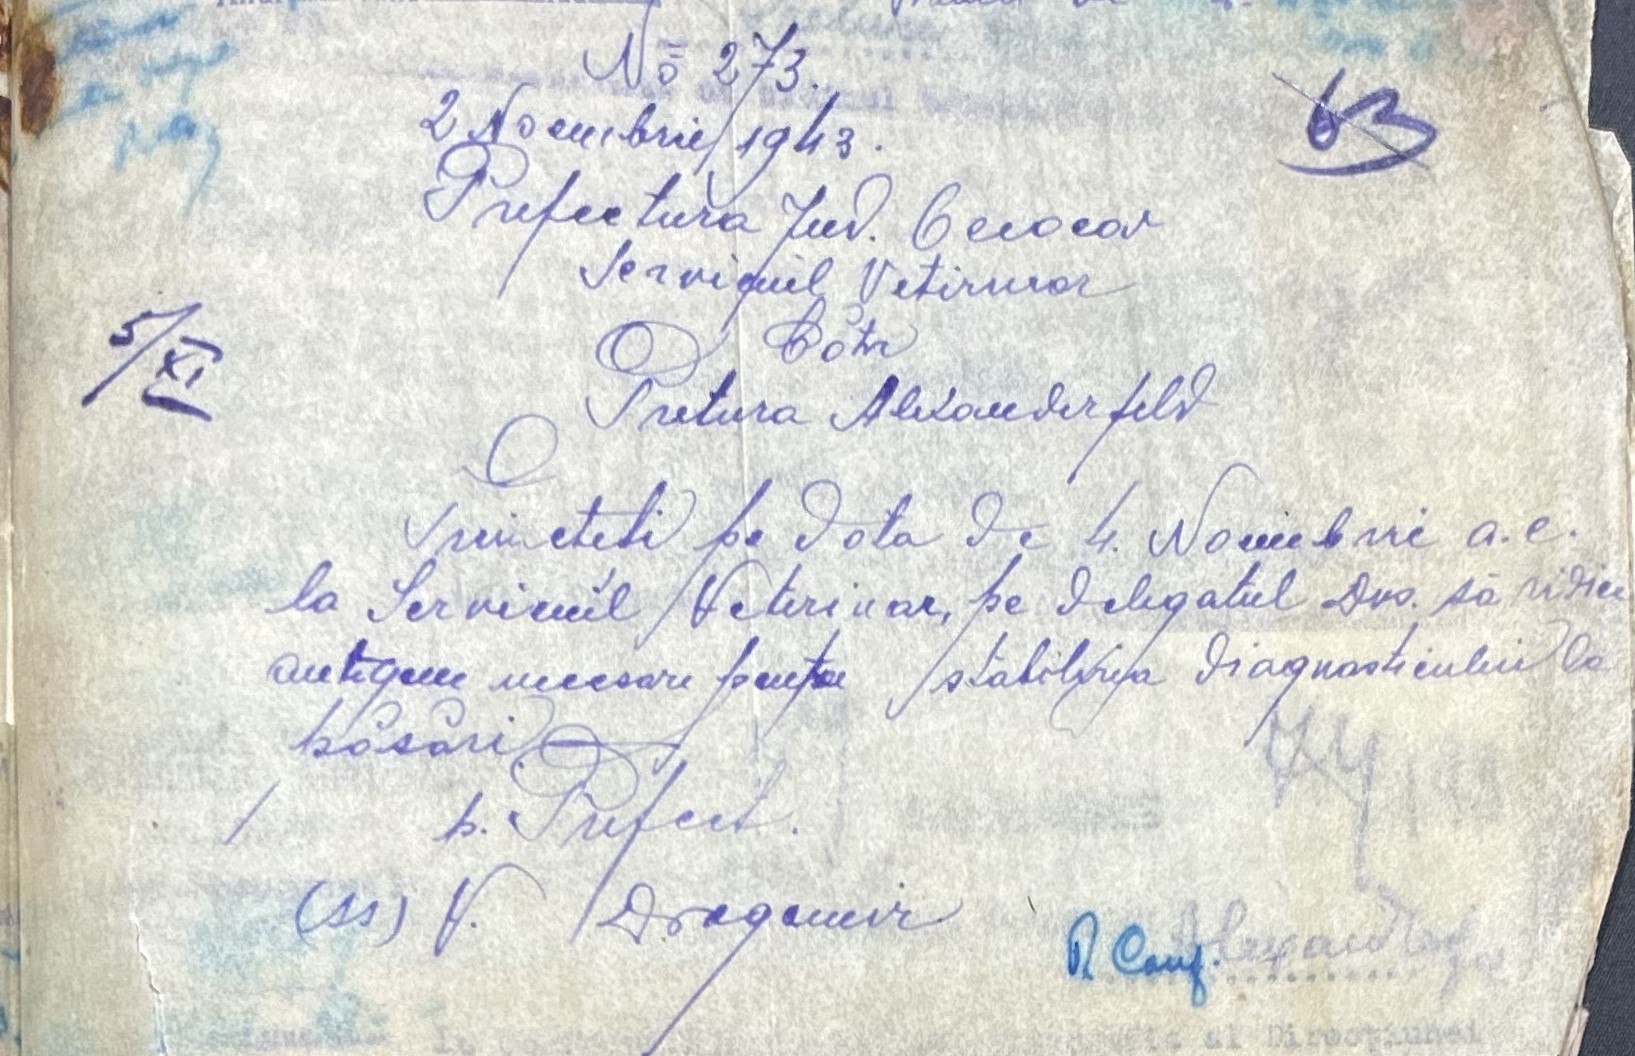 No 273.
2 Noembrie 1943.
63
Prefectura Jud. Oceacov
Serviciul Veterinar
Cătr
5/XI
Pretura Alexanderfeld
Trimeteti pe data de 4. Noembrie a.c.
la Serviciul Veterinar, pe delegatul Dvs. să ridice
antigen necesare pentru stabilirea diagnosticului la
păsări
p. Prefect.
(ss) V. Dragomir
P. Conf.
al Direcțiunei